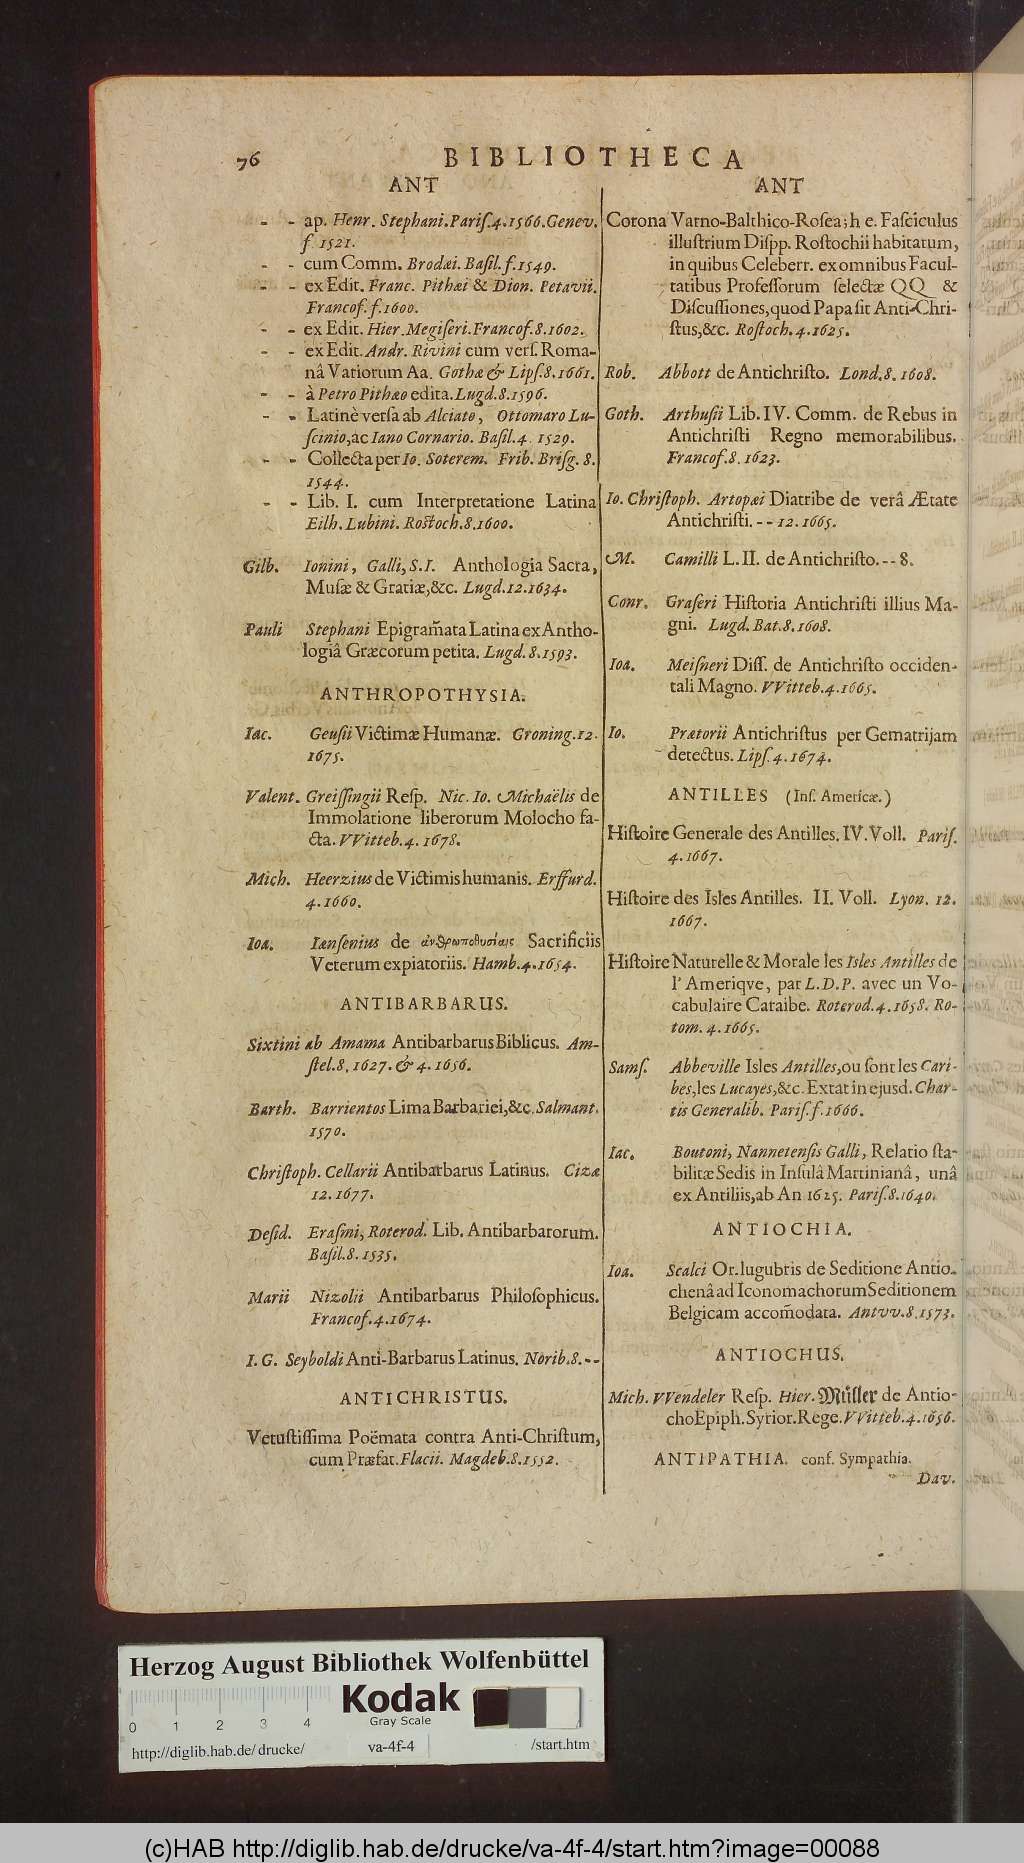 76
BIBLIOTHECA
ANT
- - ap. Henr. Stephani. Pariſ. 4. 1566. Genev.
f 1521.
- - cum Comm. Brodæi. Baſil. f. 1549.
- - ex Edit. Franc. Pithæi & Dion. Petavii.
Francof. f. 1600.
- - ex Edit. Hier. Megiſeri. Francof. 8. 1602.
- - ex Edit. Andr. Rivini cum verſ. Roma-
nâ Variorum Aa. Gothæ & Lipſ. 8. 1661.
- - à Petro Pithæo edita. Lugd. 8. 1596.
- - Latinè verſa ab Alciato, Ottomaro Lu-
ſcinio, ac Iano Cornario. Baſil. 4. 1529.
- - Collecta per Io. Soterem. Frib. Briſg. 8.
1544.
- - Lib. I. cum Interpretatione Latina
Eilh. Lubini. Roſtoch. 8. 1600.
Gilb. Ionini, Galli, S. I. Anthologia Sacra,
Muſæ & Gratiæ, &c. Lugd. 12. 1634.
Pauli Stephani Epigram̃ata Latina ex Antho-
logiâ Græcorum petita. Lugd. 8. 1593.
ANTHROPOTHYSIA.
Iac. Geuſii Victimæ Humanæ. Groning. 12.
1675.
Valent. Greiſſingii Reſp. Nic. Io. Michaëlis de
Immolatione liberorum Molocho fa-
cta. VVitteb. 4. 1678.
Mich. Heerzius de Victimis humanis. Erffurd.
4. 1660.
Ioa. Ianſenius de ἀνθρωποθυσίαις Sacrificiis
Veterum expiatoriis. Hamb. 4. 1654.
ANTIBARBARUS.
Sixtini ab Amama Antibarbarus Biblicus. Am-
ſtel. 8. 1627. & 4. 1656.
Barth. Barrientos Lima Barbariei, &c. Salmant.
1570.
Chriſtoph. Cellarii Antibarbarus Latinus. Cizæ
12. 1677.
Deſid. Eraſmi, Roterod. Lib. Antibarbarorum.
Baſil. 8. 1535.
Marii Nizolii Antibarbarus Philoſophicus.
Francof. 4. 1674.
I. G. Seyboldi Anti-Barbarus Latinus. Norib. 8. --
ANTICHRISTUS.
Vetuſtiſſima Poëmata contra Anti-Chriſtum,
cum Præfat. Flacii. Magdeb. 8. 1552.
ANT
Corona Varno-Balthico-Roſea; h e. Faſciculus
illuſtrium Diſpp. Roſtochii habitarum,
in quibus Celeberr. ex omnibus Facul-
tatibus Profeſſorum ſelectæ QQ &
Diſcuſſiones, quod Papa ſit Anti-Chri-
ſtus, &c. Roſtoch. 4. 1625.
Rob. Abbott de Antichriſto. Lond. 8. 1608.
Goth. Arthuſii Lib. IV. Comm. de Rebus in
Antichriſti Regno memorabilibus.
Francof. 8. 1623.
Io. Chriſtoph. Artopæi Diatribe de verâ Ætate
Antichriſti. -- 12. 1665.
M. Camilli L. II. de Antichriſto. -- 8.
Conr. Graſeri Hiſtoria Antichriſti illius Ma-
gni. Lugd. Bat. 8. 1608.
Ioa. Meiſneri Diſſ. de Antichriſto occiden-
tali Magno. VVitteb. 4. 1665.
Io. Prætorii Antichriſtus per Gematrijam
detectus. Lipſ. 4. 1674.
ANTILLES (Inſ. Americæ.)
Hiſtoire Generale des Antilles. IV. Voll. Pariſ.
4. 1667.
Hiſtoire des Isles Antilles. II. Voll. Lyon. 12.
1667.
Hiſtoire Naturelle & Morale les Isles Antilles de
l' Ameriqve, par L. D. P. avec un Vo-
cabulaire Caraibe. Roterod. 4. 1658. Ro-
tom. 4. 1665.
Samſ. Abbeville Isles Antilles, ou ſont les Cari-
bes, les Lucayes, &c. Extat in ejusd. Char-
tis Generalib. Pariſ. f. 1666.
Iac. Boutoni, Nannetenſis Galli, Relatio ſta-
bilitæ Sedis in Inſulâ Martinianâ, unâ
ex Antiliis, ab An 1625. Pariſ. 8. 1640.
ANTIOCHIA.
Ioa. Scalci Or. lugubris de Seditione Antio-
chenâ ad Iconomachorum Seditionem
Belgicam accom̃odata. Antvv. 8. 1573.
ANTIOCHUS.
Mich. VVendeler Reſp. Hier. Müller de Antio-
cho Epiph. Syrior. Rege. VVitteb. 4. 1656.
ANTIPATHIA. conf. Sympathia.
Dav.
Herzog August Bibliothek Wolfenbüttel
Kodak
Gray Scale
0 1 2 3 4
http://diglib.hab.de/drucke/ va-4f-4 /start.htm
(c)HAB http://diglib.hab.de/drucke/va-4f-4/start.htm?image=00088